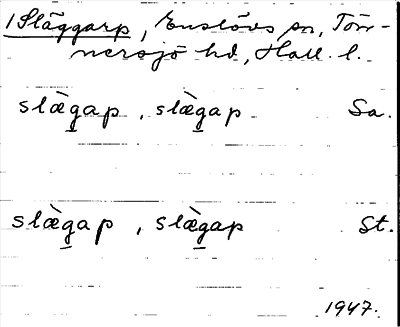 1 Släggarp, Enslövs sn, Tön-
nersjö hd, Hall. l.
slæ̀g̠ap, slæ̀g̠ap Sa.
slæ̀g̠ap, slæ̀g̠ap St.
1947.